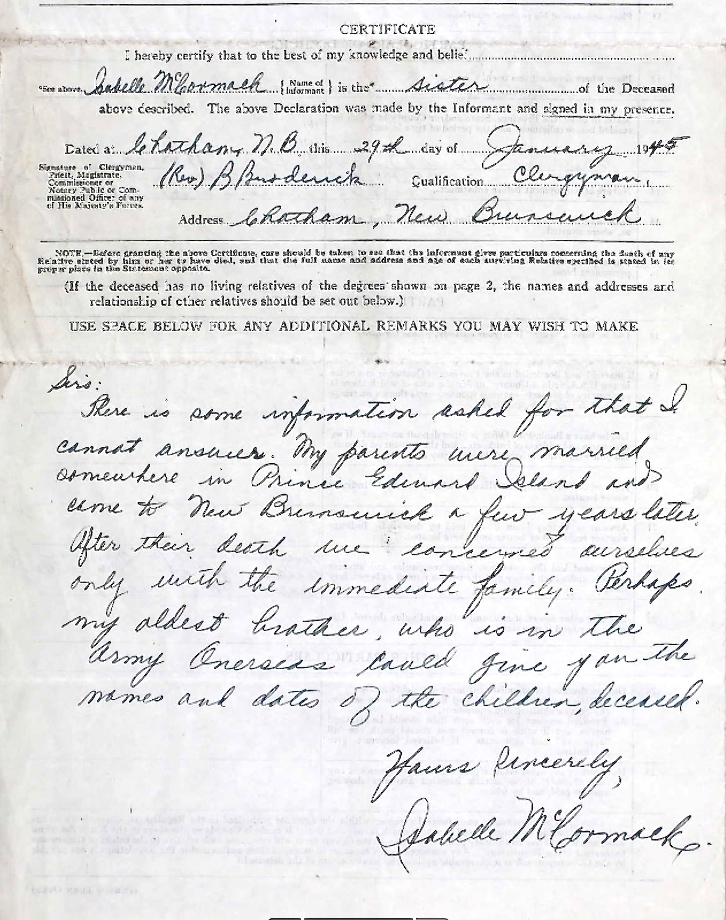 CERTIFICATE
I hereby certify that to the best of my knowledge and belief
*See above. Isabelle McCormack {Name of Informant} is the* sister of the Deceased
above described. The above Declaration was made by the Informant and signed in my presence.
Dated at Chatham, N.B. this 29th day of January 1945
Signature of Clergyman, Priest, Magistrate, Commissioner or Notary Public or Commissioned Officer of any of His Majesty's Forces. (Rev) B Broderick Qualification Clergyman.
Address Chatham, New Brunswick
NOTE.—Before granting the above Certificate, care should be taken to see that the informant gives particulars concerning the death of any
Relative stated by him or her to have died, and that the full name and address and age of each surviving Relative specified is stated in its
proper place in the Statement opposite.
(If the deceased has no living relatives of the degrees shown on page 2, the names and addresses and
relationship of other relatives should be set out below.)
USE SPACE BELOW FOR ANY ADDITIONAL REMARKS YOU MAY WISH TO MAKE
Sirs:
There is some information asked for that I
cannot answer. My parents were married
somewhere in Prince Edward Island and
came to New Brunswick a few years later.
After their death we concerned ourselves
only with the immediate family. Perhaps
my oldest brother, who is in the
Army Overseas could give you the
names and dates of the children, deceased.
Yours Sincerely,
Isabelle McCormack.